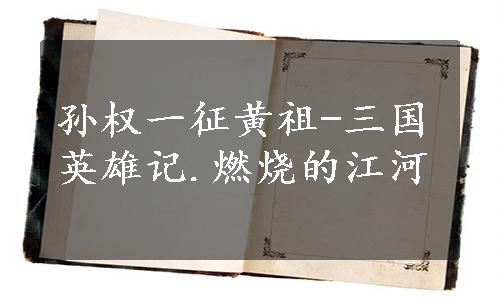 孙权一征黄祖-三国
英雄记.燃烧的江河